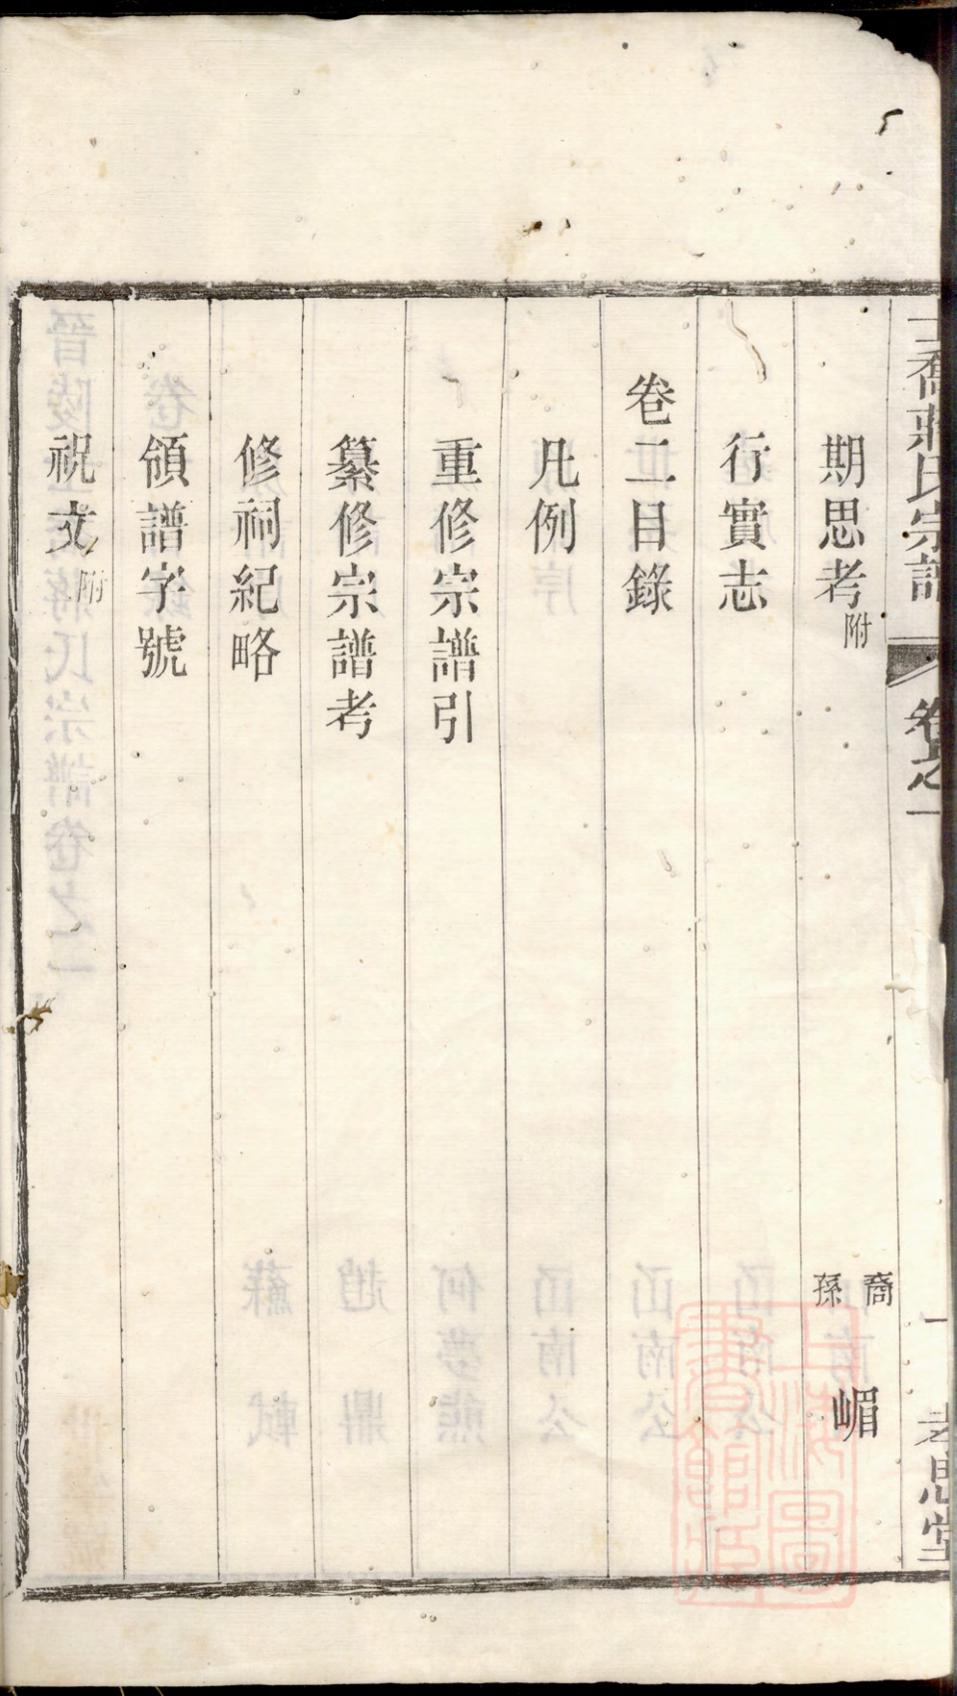 期思考附 裔孫 嵋
行實志
卷二目錄
凡例
重修宗譜引
纂修宗譜考
修祠紀略
領譜字號
祝文附
喬蔣氏宗譜 卷之一 一 孝思堂